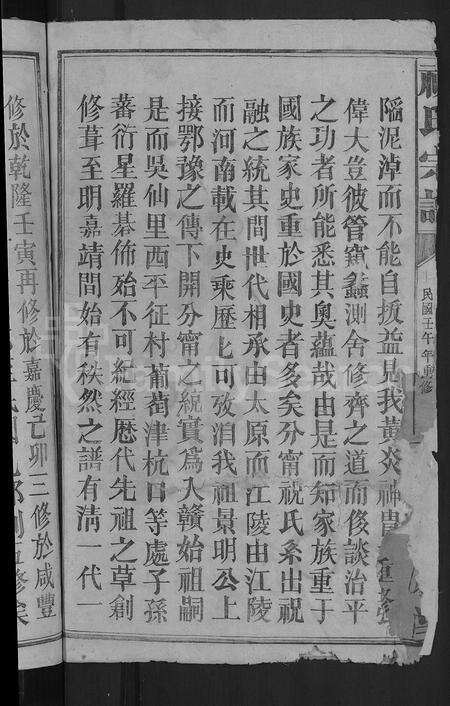 祝氏宗譜
民國壬午年動修
陷泥淖而不能自拔益見我黃炎神冑
偉大豈彼管窺蠡測舍修齊之道而侈談治平
之功者所能悉其奧蘊哉由是而知家族重于
國族家史重於國史者多矣分甯祝氏系出祝
融之統其間世代相承由太原而江陵由江陵
而河南載在史乘歷匕可攷洎我祖景明公上
接鄂豫之傳下開分甯之統實為入贛始祖嗣
是而吳仙里西平征村葡萄津杭口等處子孫
蕃衍星羅棊佈始不可紀經歷代先祖之草創
修葺至明嘉靖間始有秩然之譜有清一代一
修於乾隆壬寅再修於嘉慶己卯三修於咸豐